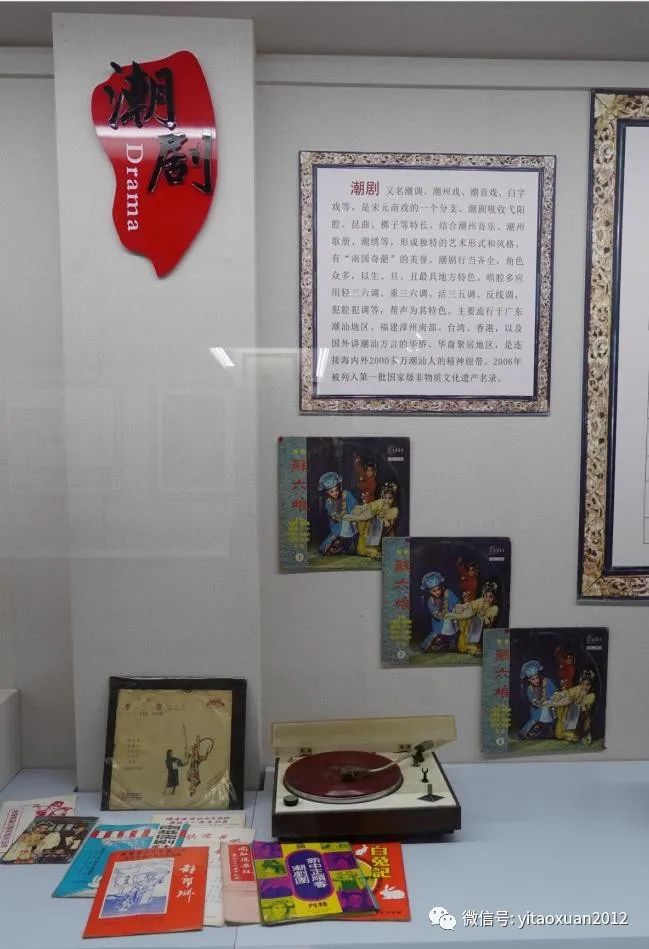 潮剧
Drama
潮剧 又名潮调、潮州戏、潮音戏、白字
戏等，是宋元南戏的一个分支。潮剧吸收弋阳
腔、昆曲、梆子等特长，结合潮州音乐、潮州
歌册、潮绣等，形成独特的艺术形式和风格，
有“南国奇葩”的美誉。潮剧行当齐全，角色
众多，以生、旦、丑最具地方特色。唱腔多应
用轻三六调、重三六调、活三五调、反线调，
犯腔犯调等，帮声为其特色。主要流行于广东
潮汕地区、福建漳州南部、台湾、香港，以及
国外讲潮汕方言的华侨、华裔聚居地区，是连
接海内外2000多万潮汕人的精神纽带。2006年
被列入第一批国家级非物质文化遗产名录。
蘇六娘
1
蘇六娘
2
蘇六娘
3
新中正順香
潮劇團
特刊
白兔記
微信号: yitaoxuan2012